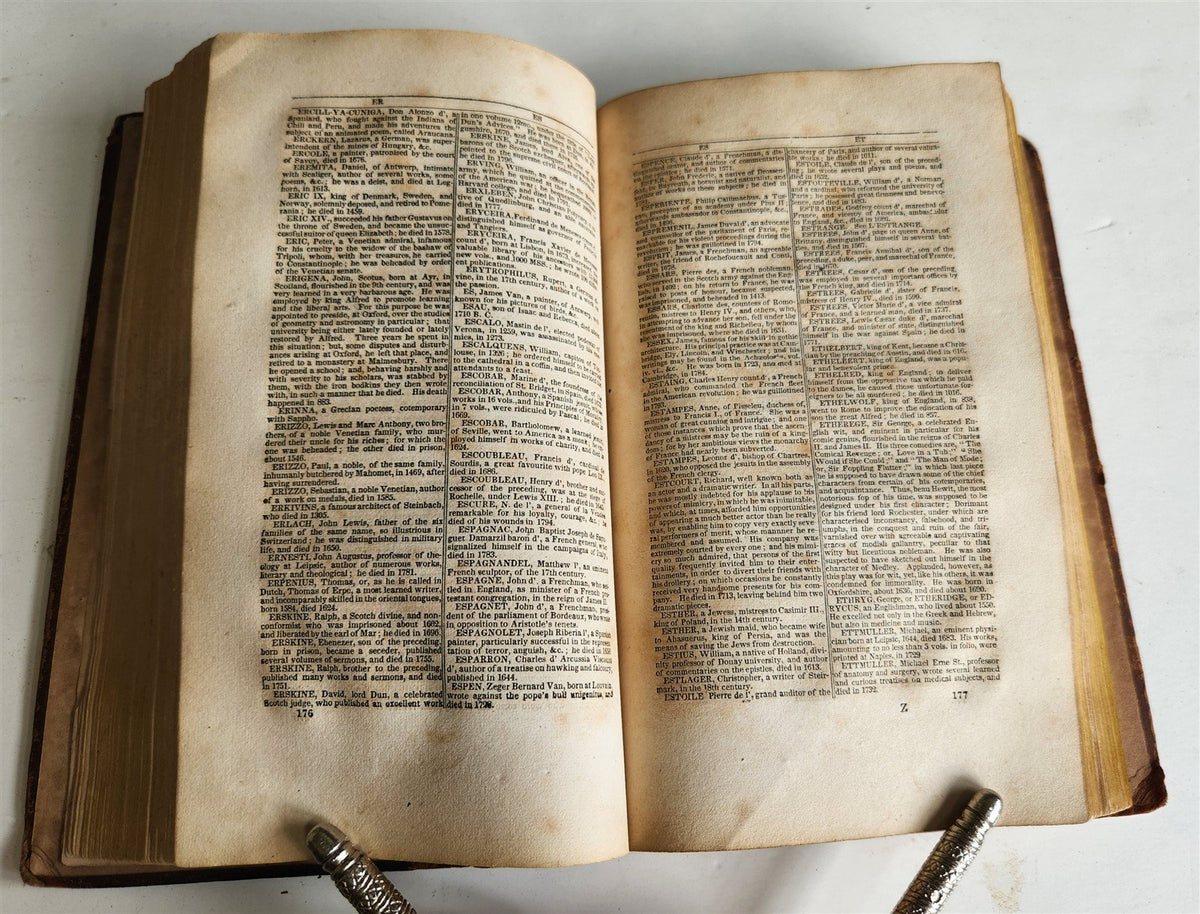 ER
ES
ERCILL-YA-CUNIGA, Don Alonzo d', a
Spaniard, who fought against the Indians of
Chili and Peru, and made his adventures the
subject of an animated poem, called Araucana.
ERCKERN, Lazarus, a German, was super-
intendent of the mines of Hungary, &c.
ERCOLE, a painter, patronised by the court
of Savoy, died in 1676.
EREMITA, Daniel, of Antwerp, intimate
with Scaliger, author of several works, some
poems, &c.; he was a deist, and died at Leg-
horn, in 1613.
ERIC IX, king of Denmark, Sweden, and
Norway, solemnly deposed, and retired to Pome-
rania; he died in 1459.
ERIC XIV., succeeded his father Gustavus on
the throne of Sweden, and became the unsuc-
cessful suitor of queen Elizabeth; he died in 1578.
ERIC, Peter, a Venetian admiral, infamous
for his cruelty to the widow of the bashaw of
Tripoli, whom, with her treasures, he carried
to Constantinople; he was beheaded by order
of the Venetian senate.
ERIGENA, John, Scotus, born at Ayr, in
Scotland, flourished in the 9th century, and was
very learned in a very barbarous age. He was
employed by king Alfred to promote learning
and the liberal arts. For this purpose he was
appointed to preside, at Oxford, over the studies
of geometry and astronomy in particular; that
university being either lately founded or lately
restored by Alfred. Three years he spent in
this situation; but, some disputes and disturb-
ances arising at Oxford, he left that place, and
retired to a monastery at Malmesbury. There
he opened a school; and, behaving harshly and
with severity to his scholars, was stabbed by
them, with the iron bodkins they then wrote
with, in such a manner that he died. His death
happened in 883.
ERINNA, a Grecian poetess, cotemporary
with Sappho.
ERIZZO, Lewis and Marc Anthony, two bro-
thers, of a noble Venetian family, who mur-
dered their uncle for his riches; for which the
one was beheaded; the other died in prison,
about 1546.
ERIZZO, Paul, a noble, of the same family,
inhumanly butchered by Mahomet, in 1469, after
having surrendered.
ERIZZO, Sebastian, a noble Venetian, author
of a work on medals, died in 1585.
ERKIVINS, a famous architect of Steinbach,
who died in 1305.
ERLACH, John Lewis, father of the six
families of the same name, so illustrious in
Switzerland; he was distinguished in military
life, and died in 1650.
ERNESTI, John Augustus, professor of the-
ology at Leipsic, author of numerous works,
literary and theological; he died in 1781.
ERPENIUS, Thomas, or, as he is called in
Dutch, Thomas of Erpe, a most learned writer,
and incomparably skilled in the oriental tongues,
born 1584, died 1624.
ERSKINE, Ralph, a Scotch divine, and non-
conformist who was imprisoned about 1682,
and liberated by the earl of Mar; he died in 1696.
ERSKINE, Ebenezer, son of the preceding,
born in prison, became a seceder, published
several volumes of sermons, and died in 1755.
ERSKINE, Ralph, brother to the preceding,
published many works and sermons, and died
in 1751.
ERSKINE, David, lord Dun, a celebrated
Scotch judge, who published an excellent work
176
in one volume 12mo., under the
Dun's Advices." He was born
gunshire, 1670, and died
ERSKINE, James,
barons of the Scotch exchequer,
he died in 1796.
ERVING, William, an officer in the
army, which he quitted at the
of the American war; he
Harvard college, and died in 1791.
ERXLEBIN, John Christian Polycarp,
tive of Quedlinburg, and an
died in 1777.
ERYCEIRA, Ferdinand de Meneses,
distinguished himself as governor of
and Tangiers.
ERYCEIRA, Francis Xavier de
count d', born at Lisbon, in 1673,
valuable library of his ancestors with
new vols., and 1000 MSS.; he wrote
ent publications.
ERYTROPHILUS, Rupert, a German
vine, in the 17th century, author of a work
the passion.
ES, James Van, a painter, of Antwerp,
known for his pictures of birds, &c.
ESAU, son of Isaac and Rebecca, died about
1710 B. C.
ESCALO, Mastin de l', elected
Verona, in 1259, was assassinated by
mics, in 1273.
ESCALQUENS, William, capitoul of
louse, in 1326; he ordered himself to be carried
to the cathedral in a coffin, and then invited
attendants to a feast.
ESCOBAR, Marine d', the foundress of
reconciliation of St. Bridget, in Spain, died
ESCOBAR, Anthony, a Spanish Jesuit,
works in 16 vols. and his Principles of
in 7 vols., were ridiculed by Pascal; he died
1669.
ESCOBAR, Bartholomew, a learned Jesuit,
of Seville, went to America as a monk;
ployed himself in works of charity, and died
1624.
ESCOUBLEAU, Francis d', cardinal de
Sourdis, a great favourite with pope Leo
died in 1686.
ESCOUBLEAU, Henry d', brother and suc-
cessor of the preceding, was at the siege of
Rochelle, under Lewis XIII.; he died in 1645.
ESCURE, N. de l', a general of la Vendee,
remarkable for his loyalty, courage, &c.; he
died of his wounds in 1794.
ESPAGNAC, John Baptist Joseph de Sahu-
guet Damarzil baron d', a French general, who
signalized himself in the campaigns of Italy,
died in 1783.
ESPAGNANDEL, Matthew l', an eminent
French sculptor, of the 17th century.
ESPAGNE, John d', a Frenchman, who set-
tled in England, as minister of a French pro-
testant congregation, in the reign of James II.
ESPAGNET, John d', a Frenchman, presi-
dent of the parliament of Bordeaux, who wrote
in opposition to Aristotle's tenets.
ESPAGNOLET, Joseph Riberia l', a Spanish
painter, particularly successful in the represen-
tation of terror, anguish, &c.; he died in 1656.
ESPARRON, Charles d' Arcussia Viscount
d', author of a treatise on hawking and falconry,
published in 1644.
ESPEN, Zeger Bernard Van, born at Louvain,
wrote against the pope's bull unigenitus, and
died in 1728.
ES
ET
ESPENCE, Claude d', a Frenchman, a div-
and author of commentaries
he died in 1571.
John Frederic, a native of Drossen-
in Bayreuth, a
author of works on those subjects; he died in
ESPERIENTE, Philip Callimachus, a Tus-
can, preceptor of an academy under Pius II.,
ambassador to Constantinople, &c.,
ESPREMENIL, James Duval d', an advocate
and counsellor of the parliament of Paris, re-
markable for his violent proceedings during the
he was guillotined in 1794.
ESPRIT, James, a Frenchman, an agreeable
the friend of Rochefoucault and Conti,
died in 1678.
ESSARS, Pierre des, a French nobleman,
who served in the Scotch army against the Eng-
lish, in 1402; on his return to France, he was
raised to posts of honour, became suspected,
was imprisoned, and beheaded in 1413.
ESSARS, Charlotte des, countess of Rome-
rentin, mistress to Henry IV., and others, who,
in attempting to advance her son, fell under the
resentment of the king and Richelieu, by whom
she was imprisoned, where she died in 1651.
ESSEX, James, famous for his skill in gothic
architecture. His principal practice was at Cam-
bridge, Ely, Lincoln, and Winchester; and his
writings may be found in the Archæolog. vol.
iv., &c. He was born in 1723, and died at
Cambridge, in 1784.
ESTAING, Charles Henry count d', a French
admiral, who commanded the French fleet
in the American revolution; he was guillotined
in 1793.
ESTAMPES, Anne, of Pisselen, duchess of,
mistress to Francis I, of France. She was a
woman of great cunning and intrigue; and one
of those instances which prove that the ascen-
dancy of a mistress may be the ruin of a king-
dom; for by her ambitious views the monarchy
of France had nearly been subverted.
ESTAMPES, Leonor d', bishop of Chartres
in 1620, who opposed the jesuits in the assembly
of the French clergy.
ESTCOURT, Richard, well known both as
an actor and a dramatic writer. In all his parts,
he was mostly indebted for his applause to his
powers of mimicry, in which he was inimitable,
and which, at times, afforded him opportunities
of appearing a much better actor than he really
was, by enabling him to copy very exactly seve-
ral performers of merit, whose manner he re-
membered and assumed. His company was
extremely courted by every one; and his mimi-
cry so much admired, that persons of the first
quality frequently invited him to their enter-
tainments, in order to divert their friends with
his drollery; on which occasions he constantly
received very handsome presents for his com-
pany. He died in 1713, leaving behind him two
dramatic pieces.
ESTHER, a Jewess, mistress to Casimir III.,
king of Poland, in the 14th century.
ESTHER, a Jewish maid, who became wife
to Ahasuerus, king of Persia, and was the
means of saving the Jews from destruction.
ESTIUS, William, a native of Holland, divi-
nity professor of Douay university, and author
of commentaries on the epistles, died in 1613.
ESTLAGER, Christopher, a writer of Steir-
mark, in the 18th century.
ESTOILE Pierre de l', grand auditor of the
chancery of Paris, and author of several valua-
ble works; he died in 1611.
ESTOILE, Claude de l', son of the preced-
ing; he wrote several plays and poems, and
died in 1652.
ESTOUTEVILLE, William d', a Norman,
and a cardinal, who reformed the university of
Paris; he possessed great firmness and benevo-
lence, and died in 1483.
ESTRADES, Godfrey count d', mareschal of
France, and viceroy of America, ambassador
in England, &c., died in 1686.
ESTRANGE. See L'ESTRANGE.
ESTREES, John d', page to queen Anne, of
Brittany, distinguished himself in several bat-
tles, and died in 1567.
ESTREES, Francis Annibal d', son of the
preceding, a duke, peer, and mareschal of France,
died in 1670.
ESTREES, Cæsar d', son of the preceding,
was employed in several important offices by
the French king, and died in 1714.
ESTREES, Gabrielle d', sister of Francis,
mistress of Henry IV., died in 1599.
ESTREES, Victor Marie d', a vice admiral
of France, and a learned man, died in 1737.
ESTREES, Lewis Cæsar duke d', mareschal
of France, and minister of state, distinguished
himself in the war against Spain; he died in
1771.
ETHELBERT, king of Kent, became a Chris-
tian by the preaching of Austin, and died in 616.
ETHELBERT, king of England, was a popu-
lar and benevolent prince.
ETHELRED, king of England; to deliver
himself from the oppressive tax which he paid
to the danes, he caused those unfortunate for-
eigners to be all murdered; he died in 1016.
ETHELWOLF, king of England, in 838,
went to Rome to improve the education of his
son the great Alfred; he died in 857.
ETHEREGE, Sir George, a celebrated En-
glish wit, and eminent in particular for his
comic genius, flourished in the reigns of Charles
II. and James II. His three comedies are, "The
Comical Revenge; or, Love in a Tub;" "She
Would if She Could;" and "The Man of Mode;
or, Sir Fopling Flutter;" in which last piece
he is supposed to have drawn some of the chief
characters from certain of his cotemporaries,
and acquaintance. Thus, beau Hewit, the most
notorious fop of his time, was supposed to be
designed under his first character; Dorimant
for his friend lord Rochester, under which are
characterised inconstancy, falsehood, and tri-
umphs, in the conquest and ruin of the fair,
varnished over with agreeable and captivating
graces of modish gallantry, peculiar to that
witty but licentious nobleman. He was also
suspected to have sketched out himself in the
character of Medley. Applauded, however, as
this play was for wit, yet, like his others, it was
condemned for immorality. He was born in
Oxfordshire, about 1636, and died about 1690.
ETHRYG, George, or ETHERIDGE, or ED-
RYCUS, an Englishman, who lived about 1550.
He excelled not only in the Greek and Hebrew,
but also in medicine and music.
ETTMULLER, Michael, an eminent physi-
cian born at Leipsic, 1644, died 1683. His works,
amounting to no less than 5 vols. in folio, were
printed at Naples, in 1729
ETTMULLER, Michael Erne St., professor
of anatomy and surgery, wrote several learned
and curious treatises on medical subjects, and
died in 1732.
Z
177